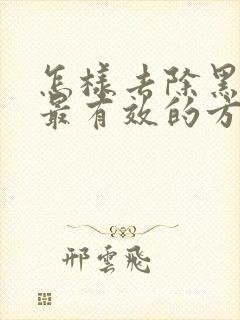 怎樣去除黑
最有效的方
邢雲飛